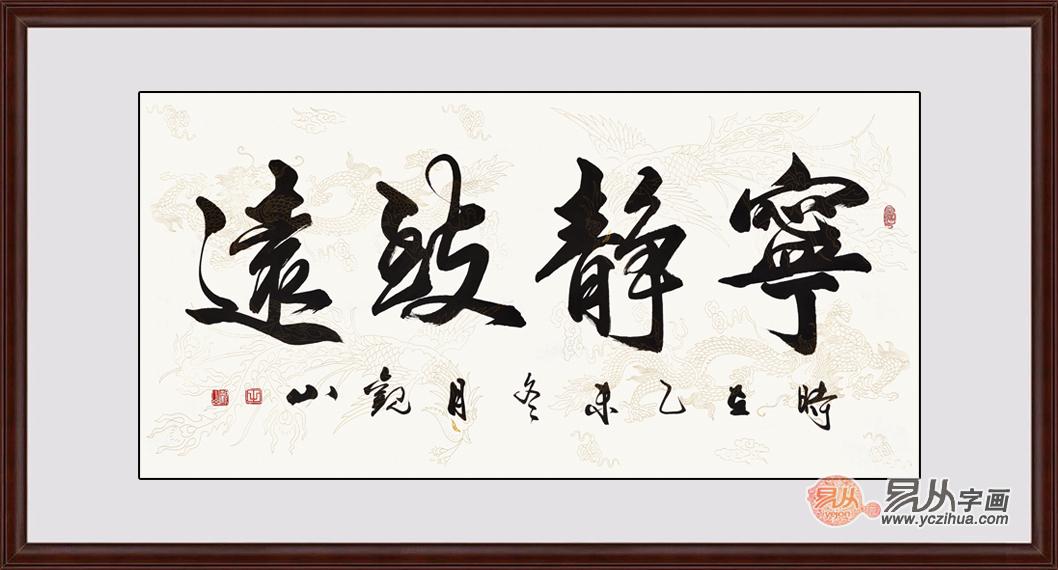 寧靜致遠
時在乙未冬月觀山
易从
yejon
易从字画
www.yczihua.com